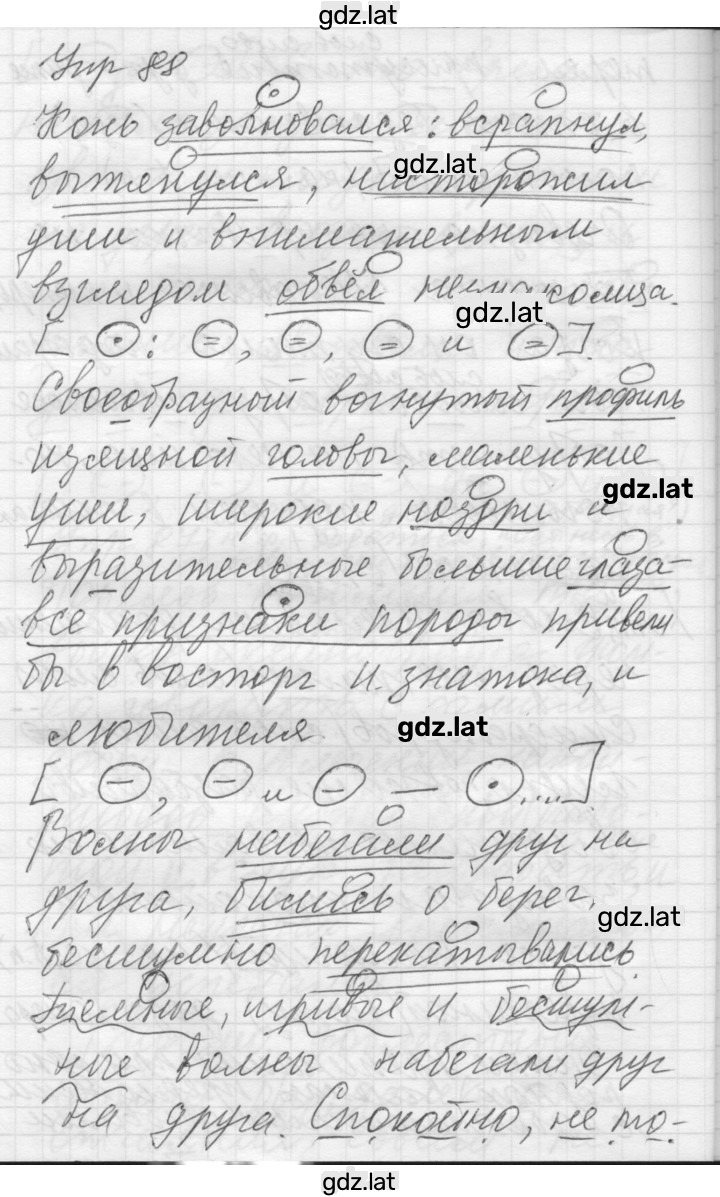 gdz.lat
Упр 88
Конь заволновался: всрапнул,
gdz.lat
вытянулся, насторожил
уши и внимательным
взглядом обвёл незнакомца.
gdz.lat
[ : =, =, = и =].
Своеобразный вогнутый профиль
изящной головы, маленькие
gdz.lat
уши, широкие ноздри и
выразительные большие глаза-
все признаки породы привели
бы в восторг и знатока, и
любителя
gdz.lat
[ —, — и — — ....]
Волны набегали друг на
друга, бились о берег,
gdz.lat
бесшумно перекатывались.
игривые и бесшум-
ные волны набегали друг
на друга. Спокойно, не то-
gdz.lat